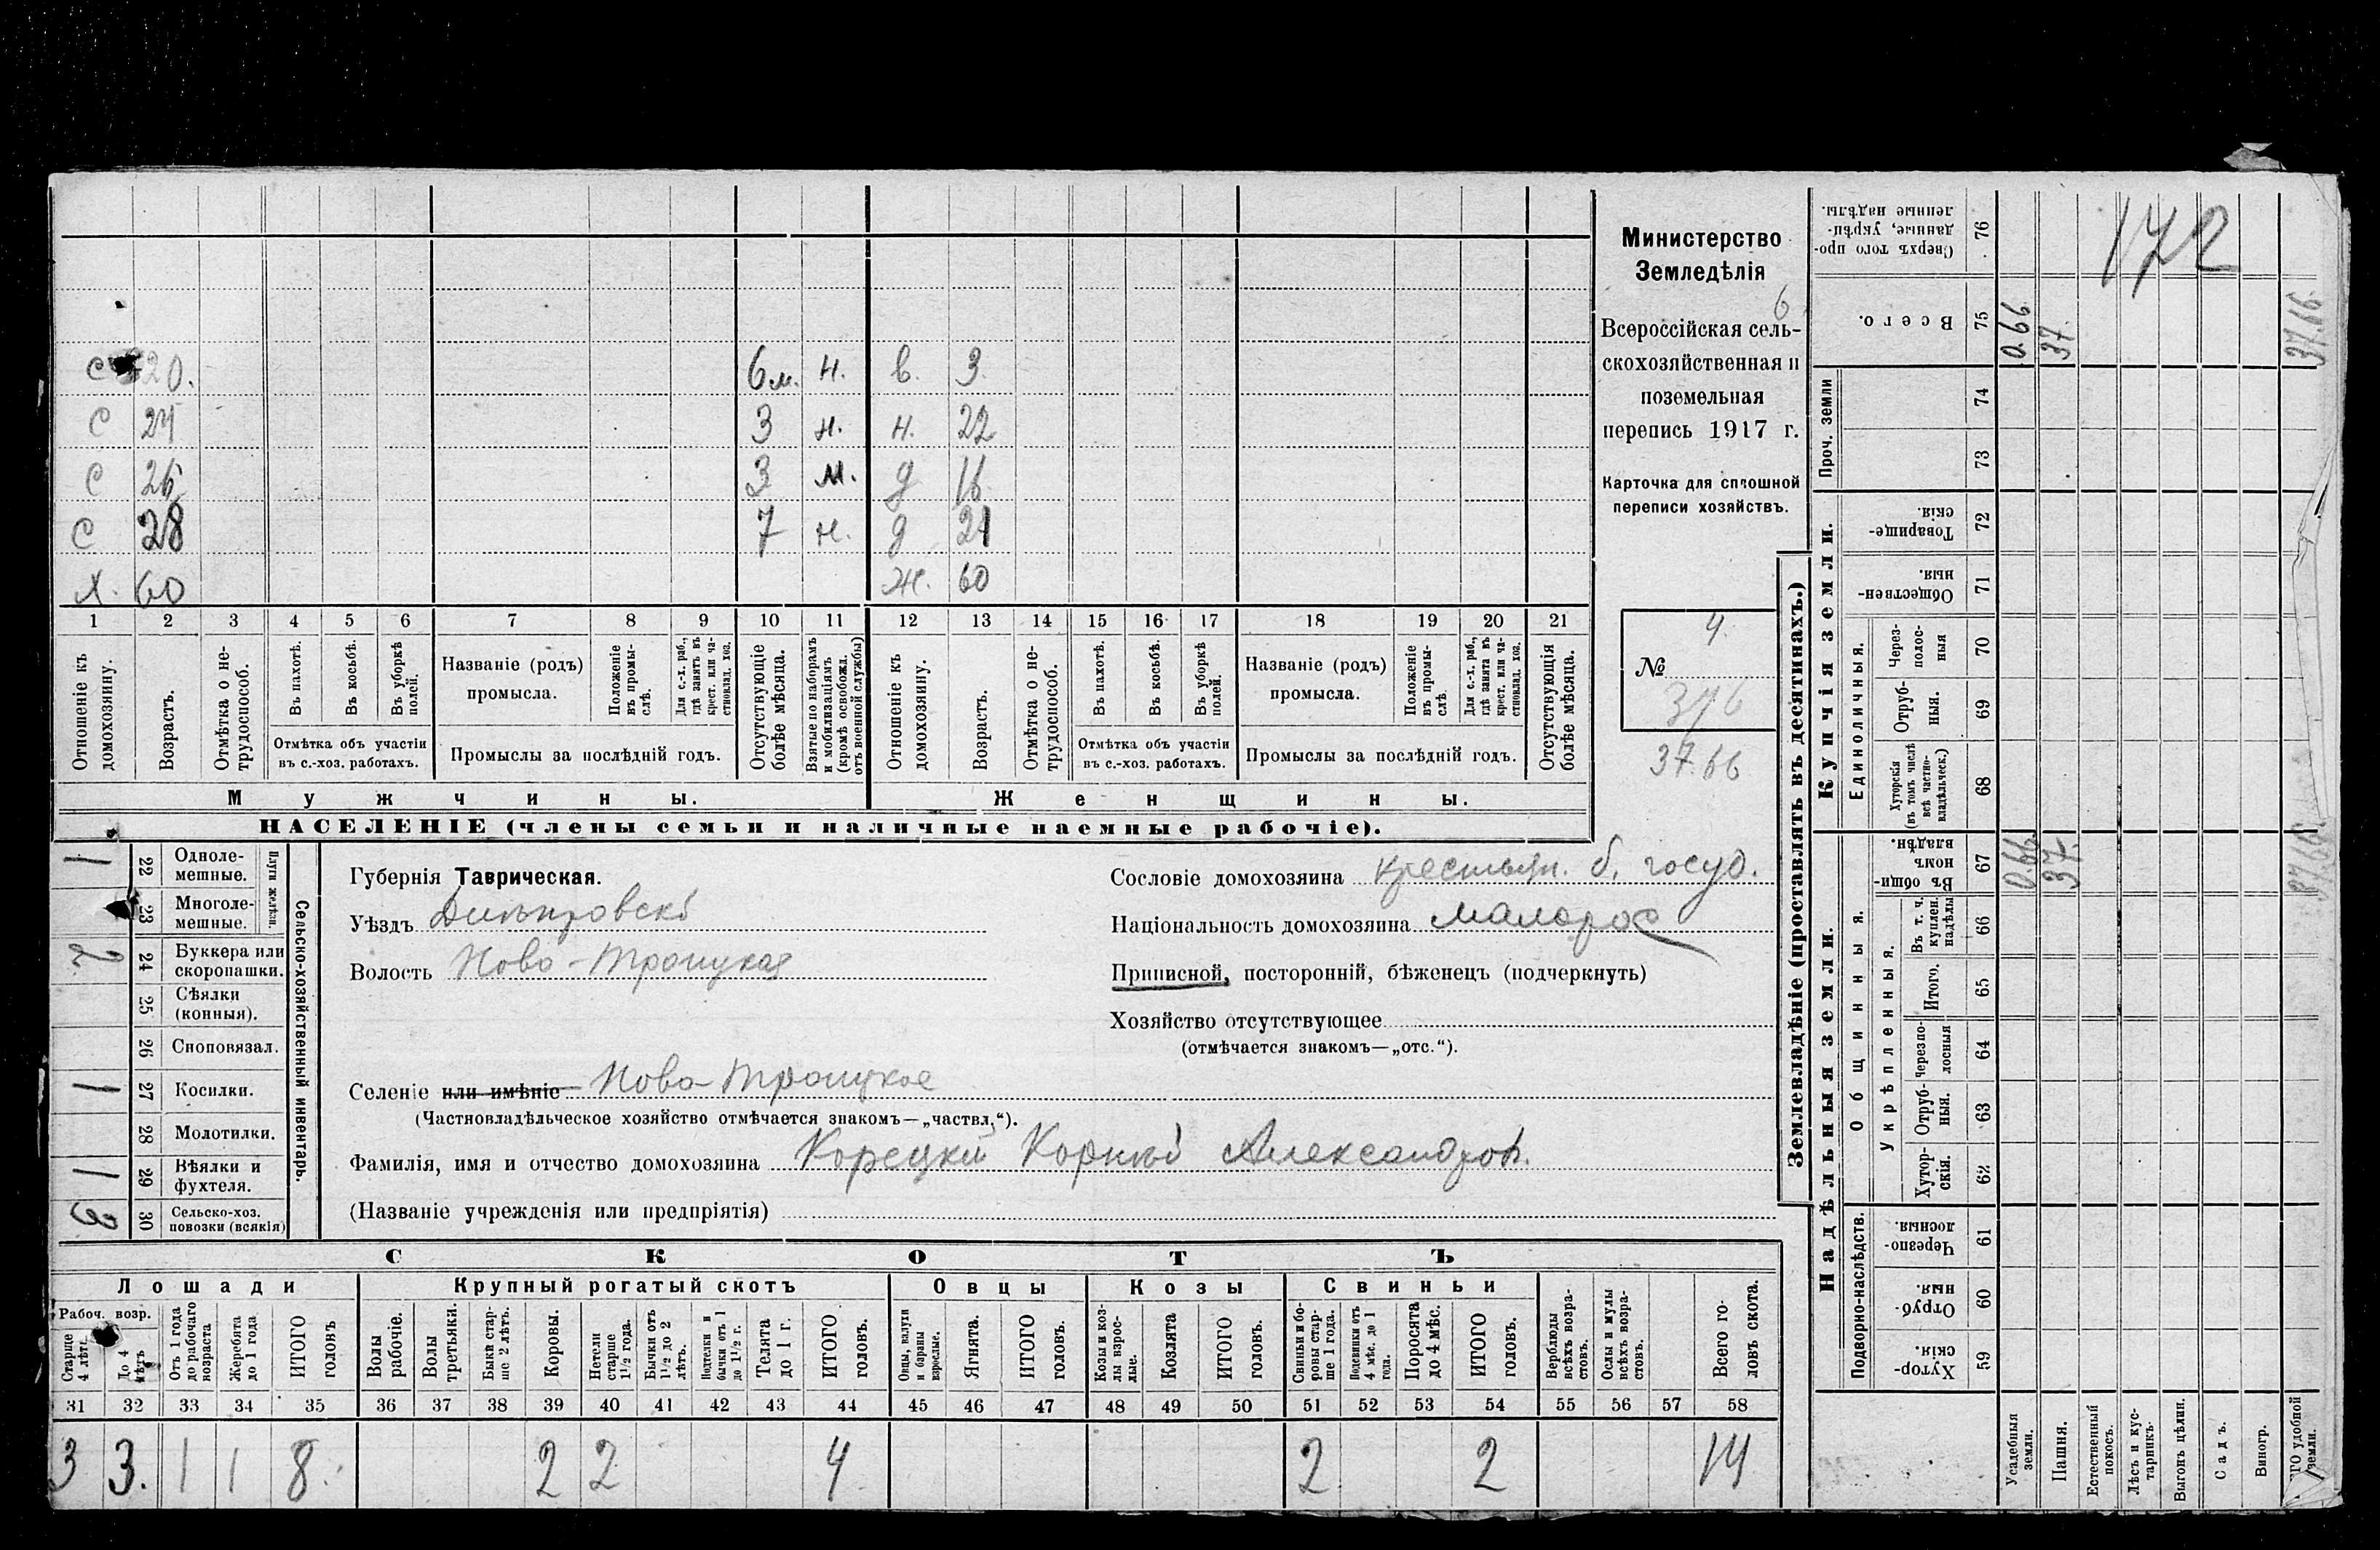 Министерство
Земледѣлія
6
Всероссійская сель-
скохозяйственная и
поземельная
перепись 1917 г.
Карточка для сплошной
переписи хозяйствъ.
4.
№
376
37.66
с 20. 6 м. н. в. 3
с 24 3 н. н. 22
с 26 3 м. д 16
с 28 7 н. д 21
х. 60 ж. 60
1 2 3 4 5 6 7 8 9 10 11 12 13 14 15 16 17 18 19 20 21
Отношеніе къ домохозяину.
Возрастъ.
Отмѣтка о не-трудоспособ.
Въ пахотѣ.
Въ косьбѣ.
Въ уборкѣ полей.
Отмѣтка объ участіи
въ с.-хоз. работахъ.
Названіе (родъ)
промысла.
Положеніе въ промы-слѣ.
Для с.-х. раб., гдѣ занятъ въ крест. или ча-стновлад. хоз.
Промыслы за послѣдній годъ.
Отсутствующіе болѣе мѣсяца.
Взятые по наборамъ и мобилизаціямъ (кромѣ освобожд. отъ военной службы)
Отношеніе къ домохозяину.
Возрастъ.
Отмѣтка о не-трудоспособ.
Въ пахотѣ.
Въ косьбѣ.
Въ уборкѣ полей.
Отмѣтка объ участіи
въ с.-хоз. работахъ.
Названіе (родъ)
промысла.
Положеніе въ промы-слѣ.
Для с.-х. раб., гдѣ занята въ крест. или ча-стновлад. хоз.
Промыслы за послѣдній годъ.
Отсутствующія болѣе мѣсяца.
Мужчины.
Женщины.
НАСЕЛЕНІЕ (члены семьи и наличные наемные рабочіе).
Сельско-хозяйственный инвентарь.
Плуги желѣзн.
1 22 Одноле-мешные.
23 Многоле-мешные.
2 24 Буккера или скоропашки.
25 Сѣялки (конныя).
26 Сноповязал.
1 27 Косилки.
28 Молотилки.
1 29 Вѣялки и фухтеля.
3 30 Сельско-хоз. повозки (всякія)
Губернія Таврическая.
Уѣздъ Днѣпровскі
Волость Ново-Троицкая
Селеніе или имѣніе Ново-Троицкое
(Частновладѣльческое хозяйство отмѣчается знакомъ—„частвл.“).
Фамилія, имя и отчество домохозяина Корецкій Корнѣй Александров.
(Названіе учрежденія или предпріятія)
Сословіе домохозяина крестьян. б. госуд.
Національность домохозяина малорос
Приписной, посторонній, бѣженецъ (подчеркнуть)
Хозяйство отсутствующее
(отмѣчается знакомъ—„отс.“).
СКОТЪ
Лошади
Крупный рогатый скотъ
Овцы
Козы
Свиньи
Рабоч. возр.
Старше 4 лѣтъ.
До 4 лѣтъ
Отъ 1 года до рабочаго возраста
Жеребята до 1 года
ИТОГО головъ
Волы рабочіе.
Волы третьяки.
Быки стар-ше 2 лѣтъ.
Коровы.
Нетели старше 1 1/2 года.
Бычки отъ 1 1/2 до 2 лѣтъ.
Подтелки и бычки отъ 1 до 1 1/2 г.
Телята до 1 г.
ИТОГО головъ.
Овцы, валухи и бараны взрослые.
Ягнята.
ИТОГО головъ.
Козы и коз-лы взрос-лые.
Козлята
ИТОГО головъ.
Свиньи и бо-ровы стар-ше 1 года.
Подсвинки отъ 4 мѣс. до 1 года.
Поросята до 4 мѣс.
ИТОГО головъ.
Верблюды всѣхъ возра-стовъ.
Ослы и мулы всѣхъ возра-стовъ.
Всего го-ловъ скота.
31 32 33 34 35 36 37 38 39 40 41 42 43 44 45 46 47 48 49 50 51 52 53 54 55 56 57 58
3 3. 1 1 8. 2 2 4 2 2 14
Землевладѣніе (проставлять въ десятинахъ.)
Купчія земли.
Надѣльныя земли.
Проч. земли
Единоличныя.
Общинныя.
Укрѣпленныя.
Подворно-наслѣдств.
Сверхъ того про-данные, укрѣп-ленные надѣлы. 76
172
Всего. 75 0.66 37. 37.66
74
73
Товарище-скія. 72
Обществен-ныя. 71
Через-полос-ныя 70
Отруб-ныя. 69
Хуторскія (въ томъ числѣ всѣ частно-владѣльческ.) 68
Въ общи-номъ владѣн. 67 0.66 37. 37.66
Въ т. ч. куплен. надѣлы 66
Итого. 65
Черезпо-лосныя 64
Отруб-ныя. 63
Хутор-скія. 62
Черезпо-лосныя. 61
Отруб-ныя. 60
Хутор-скія. 59
Усадебныя земли.
Пашня.
Естественный покосъ.
Лѣсъ и кус-тарникъ.
Выгонъ цѣлин.
Садъ.
Виногр.
ГО удобной земли.